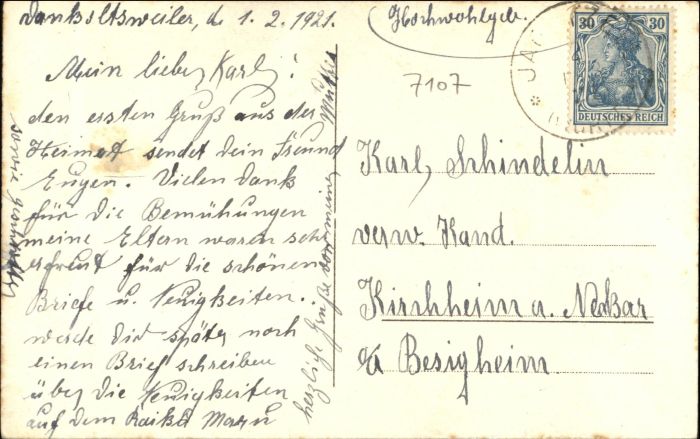 Dankoltsweiler, d. 1.2.1921.
Mein lieber Karl!
den ersten Gruß aus der
Heimat sendet dein Freund
Eugen. Vielen Dank
für die Bemühungen
meine Eltern waren sehr
erfreut für die schönen
Briefe u. Neuigkeiten.
werde Dir später noch
einen Brief schreiben
über die Neuigkeiten
auf dem Maru
herzliche Grüße von meiner Mutter
sowie
Hochwohlgeb.
7107
30 30
DEUTSCHES REICH
JA
Karl Schindelin
verw. Kand.
Kirchheim a. Neckar
Besigheim